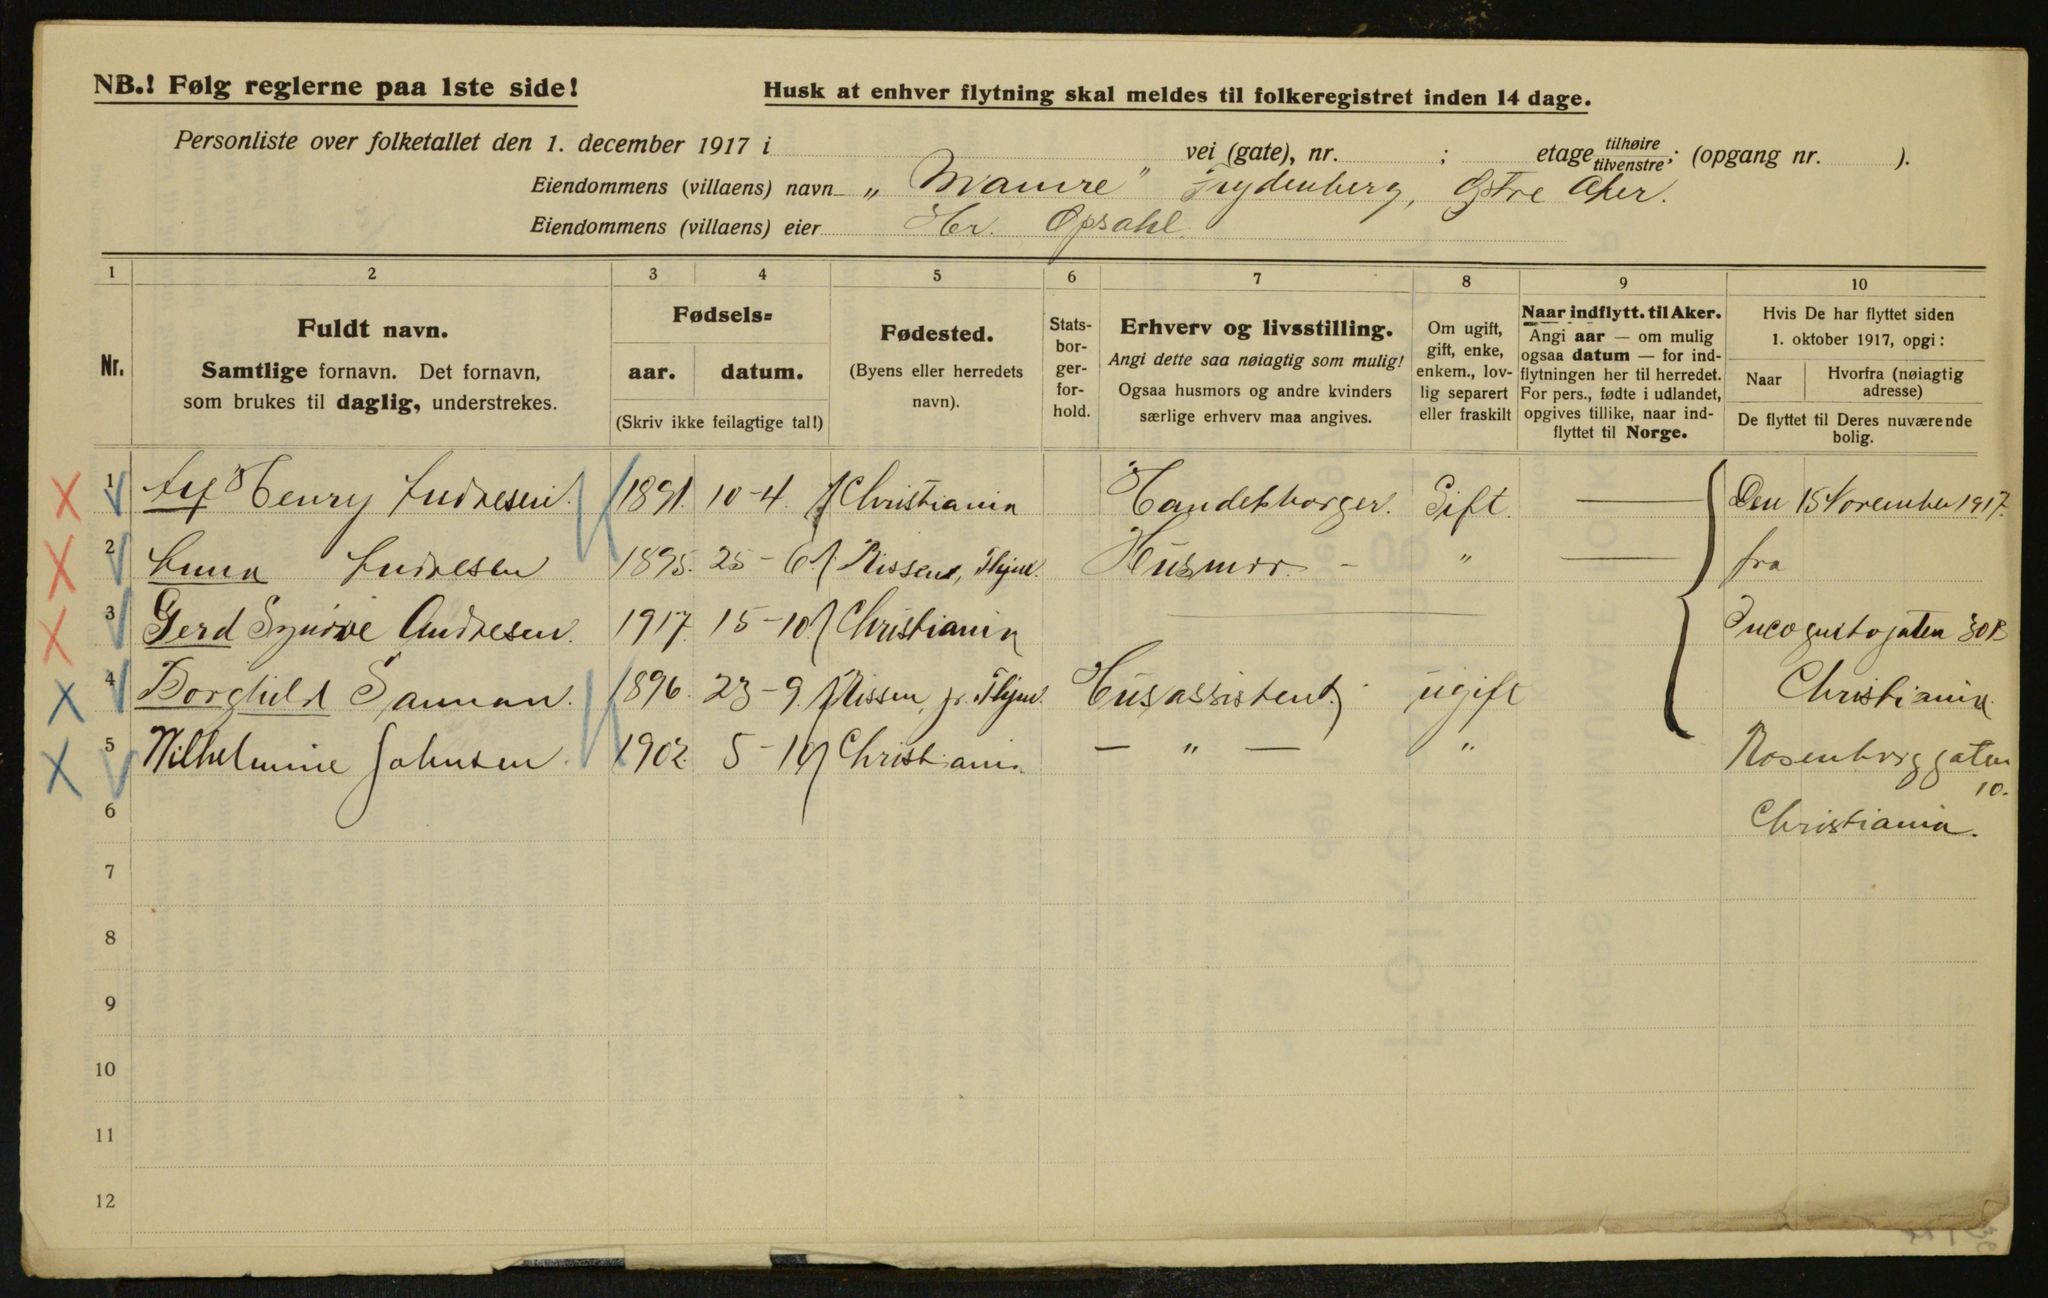 NB.! Følg reglerne paa 1ste side!
Husk at enhver flytning skal meldes til folkeregistret inden 14 dage.
Personliste over folketallet den 1. december 1917 i vei (gate), nr. ; etage tilhøire tilvenstre; (opgang nr. ).
Eiendommens (villaens) navn „Mamre" Frydenberg, Østre Aker.
Eiendommens (villaens) eier Hr. Opsahl.
1 2 3 4 5 6 7 8 9 10
Nr.
Fuldt navn.
Samtlige fornavn. Det fornavn,
som brukes til daglig, understrekes.
Fødsels=
aar. datum.
(Skriv ikke feilagtige tal!)
Fødested.
(Byens eller herredets
navn).
Stats-
bor-
ger-
for-
hold.
Erhverv og livsstilling.
Angi dette saa nøiagtig som mulig!
Ogsaa husmors og andre kvinders
særlige erhverv maa angives.
Om ugift,
gift, enke,
enkem., lov-
lig separert
eller fraskilt
Naar indflytt. til Aker.
Angi aar — om mulig
ogsaa datum — for ind-
flytningen her til herredet.
For pers., fødte i utlandet,
opgives tillike, naar ind-
flyttet til Norge.
Hvis De har flyttet siden
1. oktober 1917, opgi:
Naar
Hvorfra (nøiagtig
adresse)
De flyttet til Deres nuværende
bolig.
1 Alf Henry Andresen. 1891. 10-4. Christiania Handelsborger. Gift. — Den 15 November 1917.
2 Anna Andresen 1895. 25-6. Rissen, Thjm. Husmor. - " — fra
3 Gerd Synøve Andresen. 1917. 15-10. Christiania — Incognitogaten 30B
4 Borghild Sannan. 1896. 23-9. Rissen, pr. Thjm. Husassistent. ugift Christiania.
5 Wilhelmine Johnsen. 1902. 5-10 Christiania. — " — " Rosenborggaten
10.
6 Christiania.
7
8
9
10
11
12